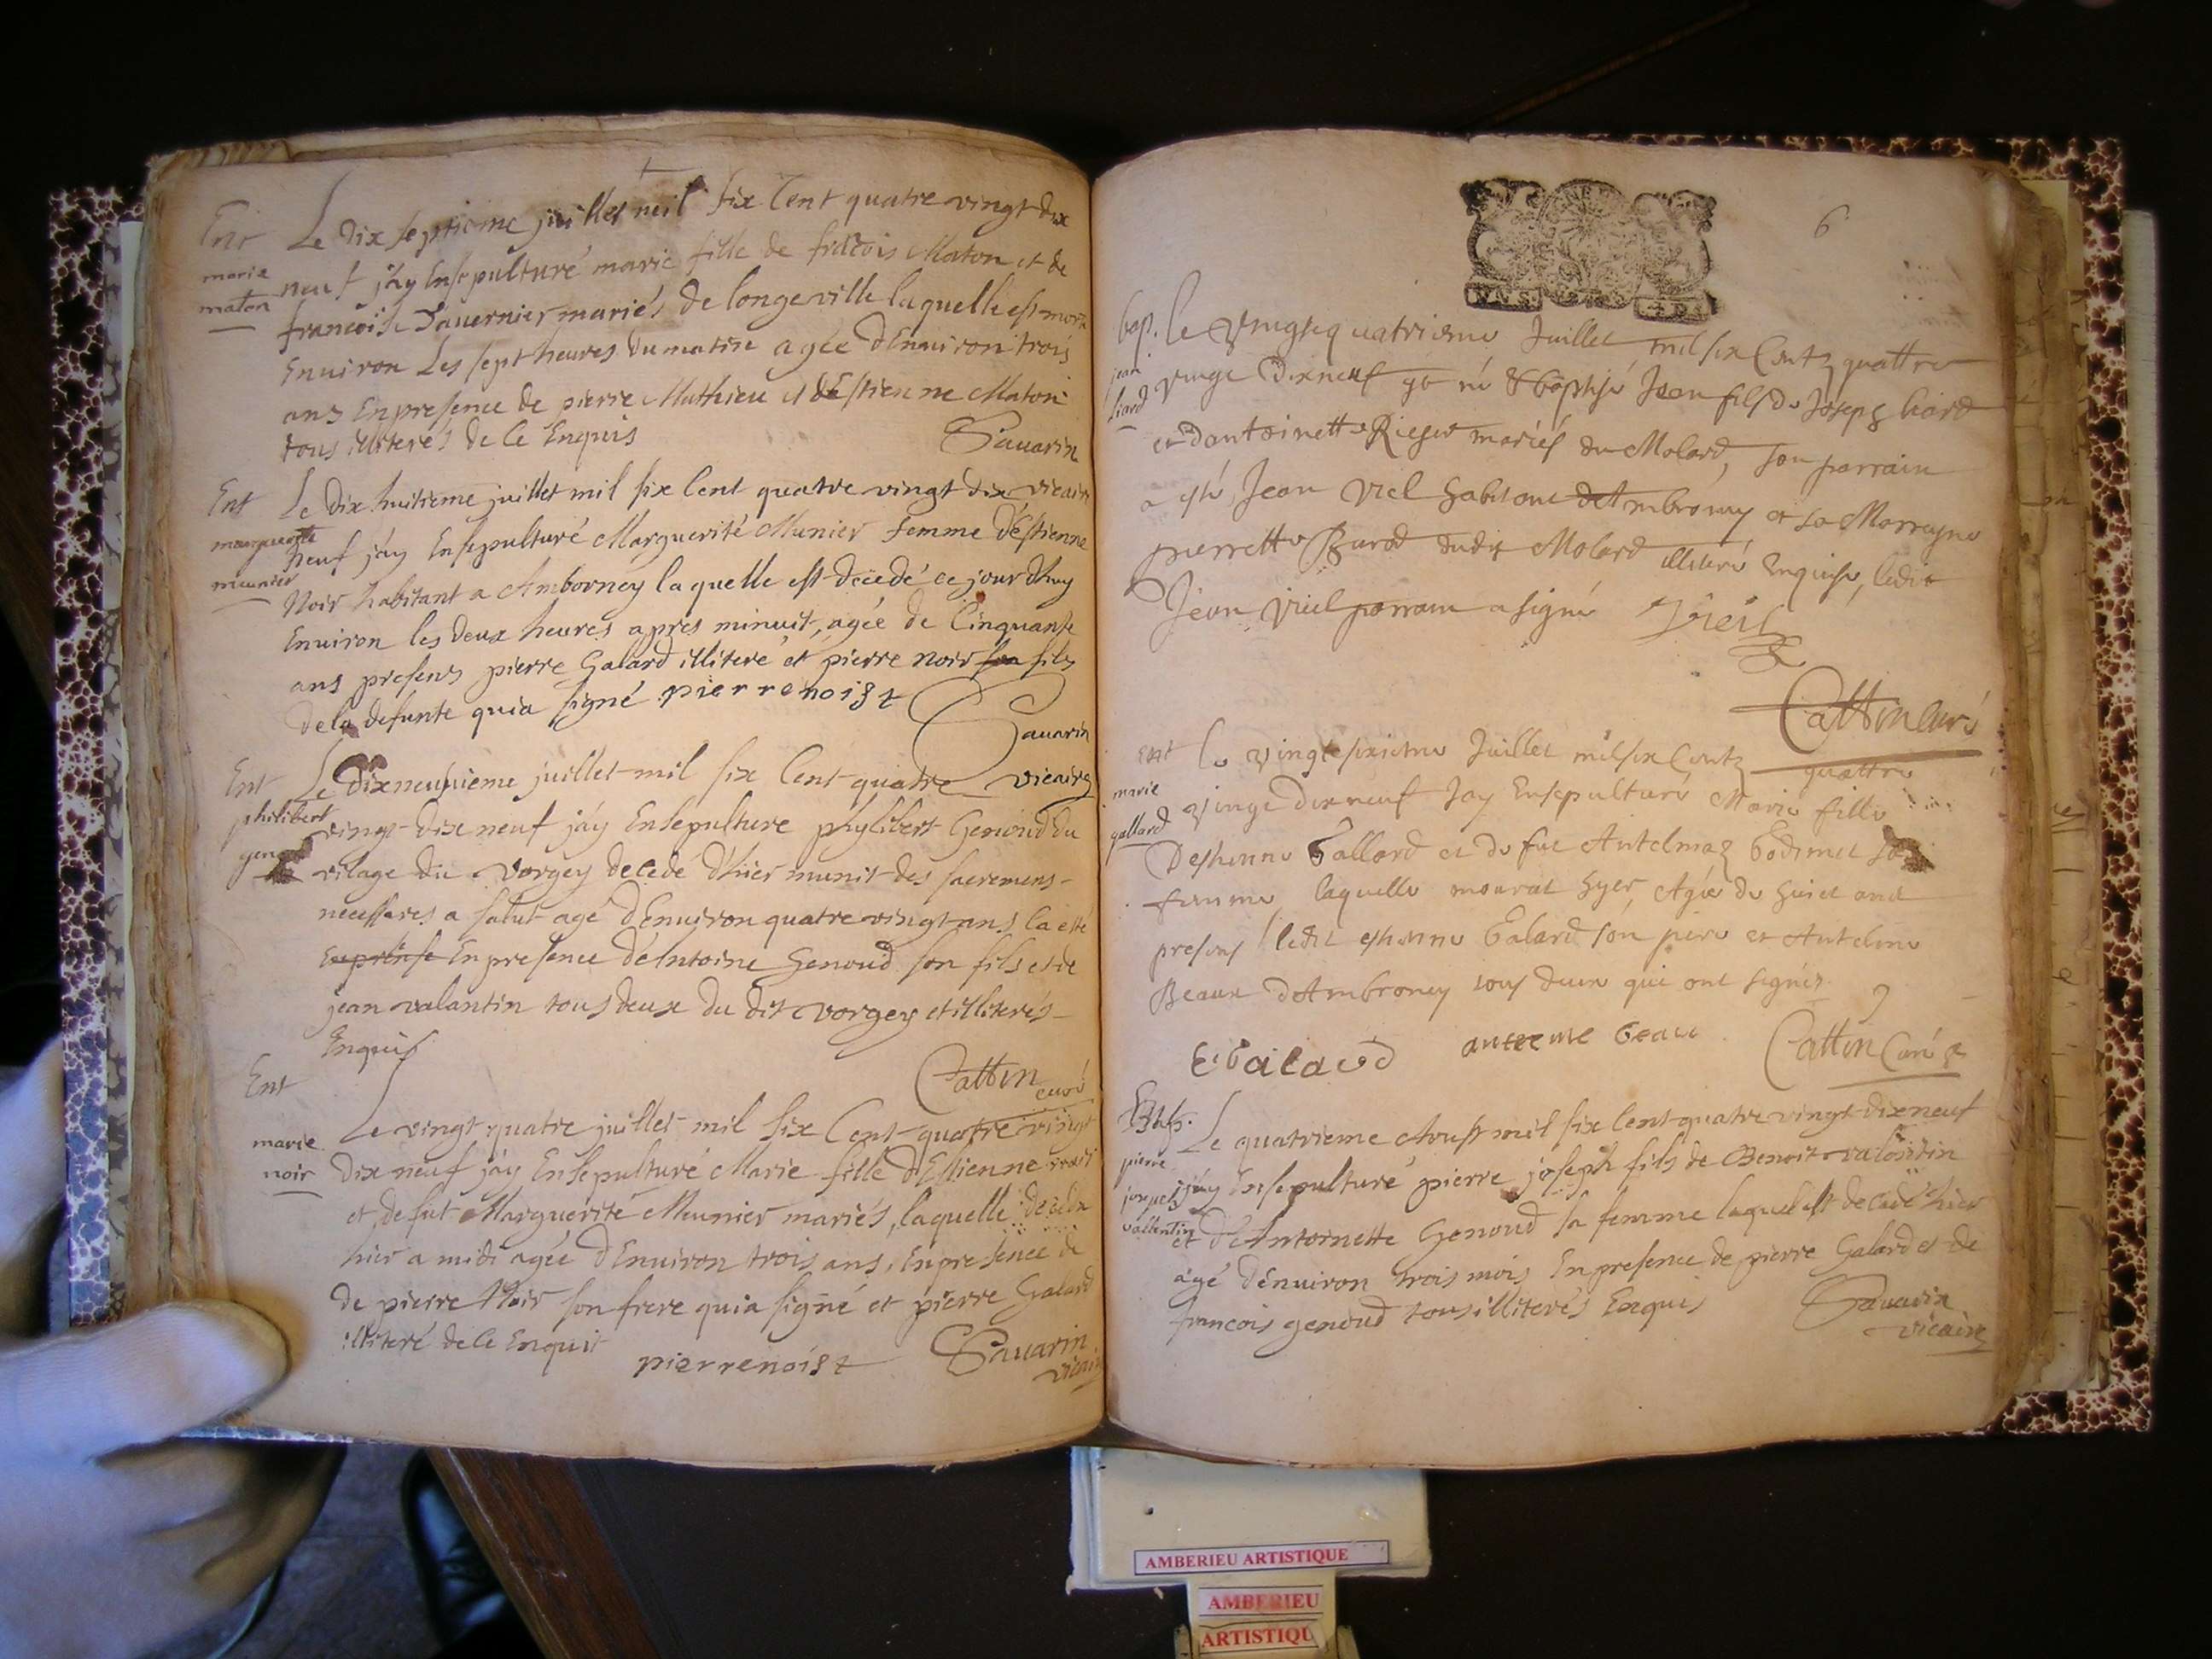 Ent Le dix septieme juillet mil six Cent quatre vingt dix
maria maton
neuf j'ay Ensepulturé marie fille de francois Maton et de
francoise Tauernier mariés de longeville laquelle est morte
Enuiron Les sept heures du matin agée d'Enuiron trois
ans En presence de pierre Mathieu et d'Estienne Maton
tous illiterés de ce Enquis Sauarin
vicaire
Ent Le dix huitieme juillet mil six Cent quatre vingt dix
marguerite meunier
neuf j'ay Ensepulturé Marguerité Munier femme d'Estienne
Noir habitant a Ambovney laquelle est decedé ce jourdhuy
Enuiron les deux heures apres minuit, agée de Cinquante
ans presens pierre Galard illiteré et pierre noir son fils
de la defunte qui a signé pierrenoist
Sauarin
vicaire
Ent Le Dixneuuieme juillet mil six Cent quatre
philibert
vingt dix neuf j'ay Ensepulturé phylibert Genoud du
vilage du Vorgey decedé d'hier munit des sacremens
necessares a salut agé d'Enuyron quatre vingt ans la esté
En presence d'Antoine Genoud son fils et de
jean valantin tous deux du dit vorgey et illiterés
Enquis
Cattin curé
Ent
Le vingt quatre juillet mil six Cent quatre vingt
marie noir
dix neuf j'ay Ensepulturé Marie fille d'Estienne noir
et de fut Marguérité Meunier mariés, laquelle deceda
hier a midi agée d'Enuiron trois ans, En presence de
de pierre Noir son frere qui a signé et pierre Galard
illiteré de ce Enquit
pierrenoist Sauarin
vicaire
6
bap. le Vingtquatrieme Juillet mil six Centz quattre
jean liard
vingt dixneuf est né & baptisé Jean fils de Joseph liard
et d'antoinette mariés du Molard, son parrain
a esté Jean Viel habitant d'Ambronay et sa Marreyne
pierrette dudit Molard illiteré Enquise, ledit
Jean Viel parrain a signé Vieil
Cattin Curé
Ent Le vingtesixieme Juillet mil six Centz quattre
marie gallard
vingt dixneuf Jay Ensepulturé Marie fille
Destienne Gallard et de fue Antelmaz Godmet sa
femme laquelle mourut hyer, Agée de huict ans
presens ledit estienne Galard son pere et Antelme
Beaux d'Ambronay tous deux qui ont signés
E. Galard anteme beau Cattin Curé
Le quatrieme Aoust mil six Cent quatre vingt dixneuf
pierre joseph vallentin
j'ay Ensepulturé pierre joseph fils de Benoit valentin
et d'Antoinette Genoud sa femme laquel est decedé hier
agé d'enuiron trois mois En presence de pierre Galard et de
francois genoud tous illiterés Enquis Sauarin
vicaire
AMBERIEU ARTISTIQUE
AMBERIEU
ARTISTIQU